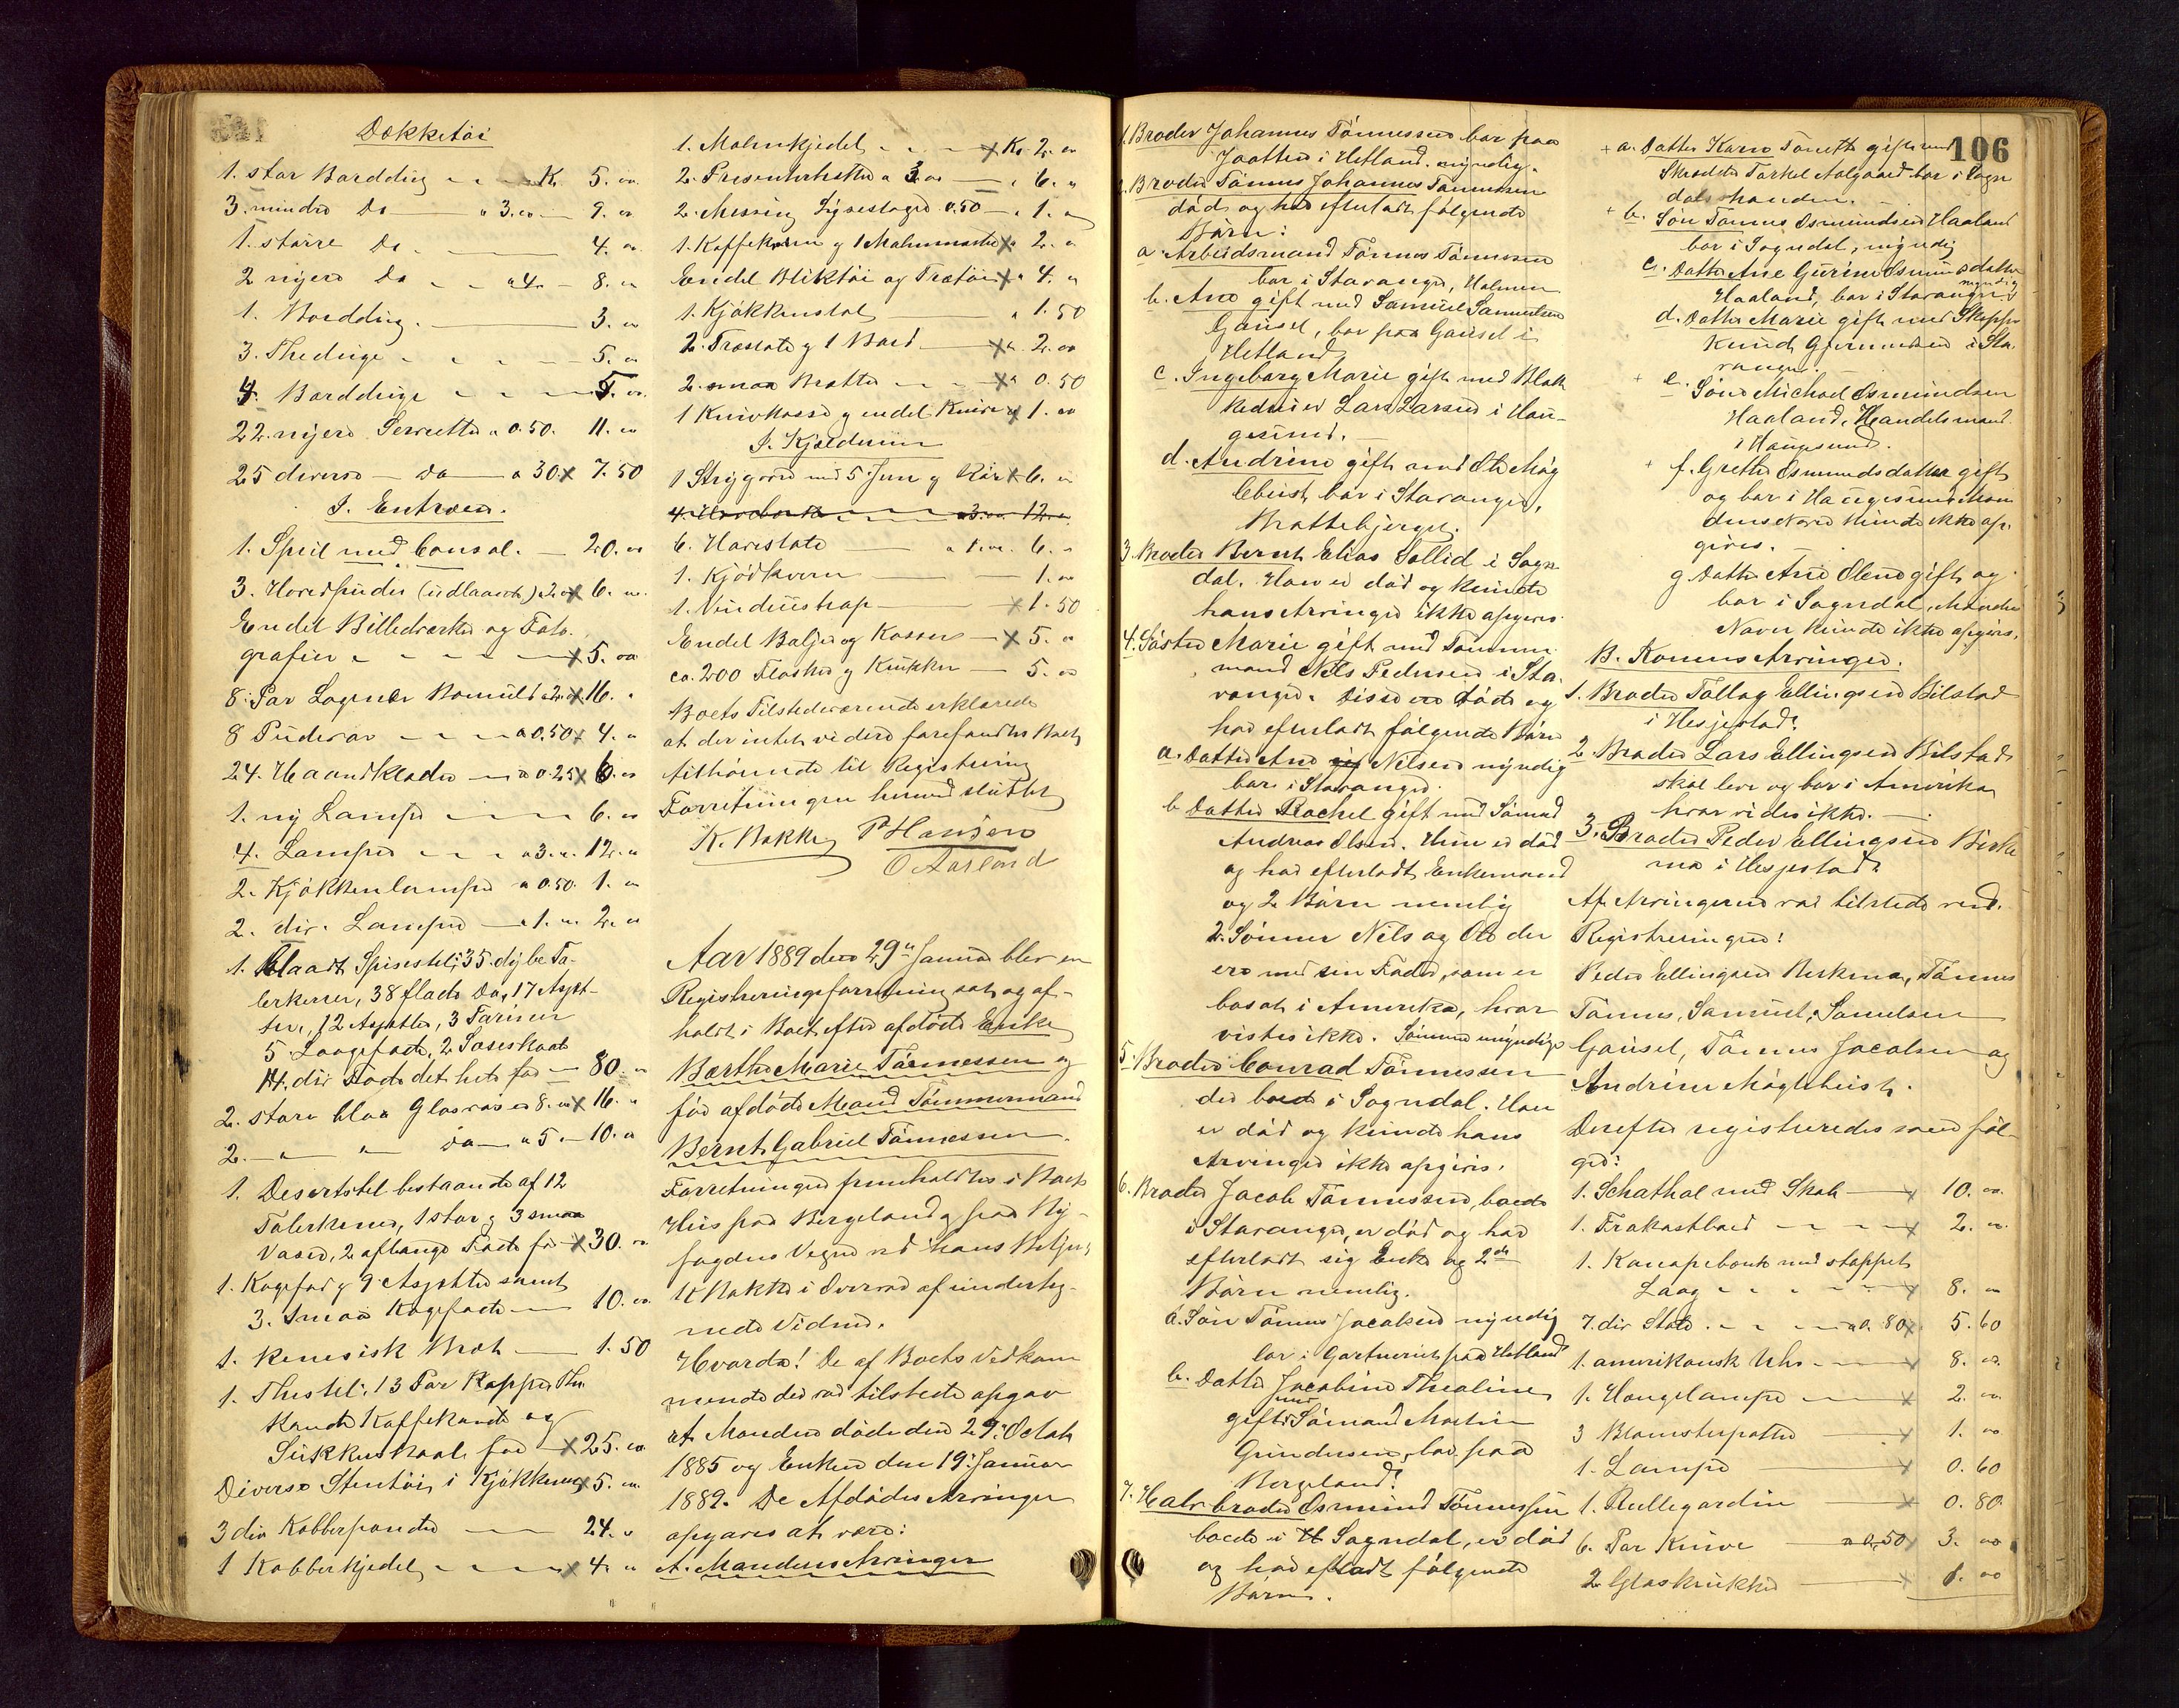 Dækketøi
1. stor Borddug Kr. 5. 00
3. mindre Do a 3.00 9. 00
1. større Do 4. 00
2 nyere Do a 4. 8. 00
1. Borddug. 3. 00
3. Theduge 5. 00
4. Bordduge 5. 00
22. nyere Servietter a 0.50. 11. 00
25 diverse Do a 30 x 7.50
I. Entreen.
1. Speil med Consol. 20. 00
3. Hovedpuder (udlaant) a 2.00 x 6. 00
Endel Billedværker og Foto-
grafier x 5. 00
8. Par Lagner Bomuld a 2. x 16. "
8 Pudevar a 0.50 x 4. "
24. Haandklæder a 0.25 x 6. 00
1. ny Lampe 6. 00
4. Lamper a 3. 12. "
2. Kjøkkenlamper a 0.50. 1. 00
2. div. Lamper a 1. 2. 00
1. Blaat Spisestel; 35. dybe Ta-
lerkener, 38 flade Do, 17 Asjet-
ter, 12 Asjetter, 3 Tariner
5 Laagefade, 2 Saseskaal
14. div Fade det hele for 80. "
2. store blaa Glasvaser a 8. x 16. "
2. " " Do a 5. 10. 00
1. Desertstel bestaaende af 12
Talerkener, 1 stor og 3 smaa
Vaser, 2 aflange Fade for x 30. 00
1. Kagefad og 9 Asjetter samt
3. smaa Kagefade 10. 00
1. kinesisk Bræt 1.50
1. Thestel: 13 Par Kopper The
kande Kaffekande og
Sukkerskaal for x 25. 00
Diverse Stentøi i Kjøkkenet x 5. 00
3 div Kobberpander 24. "
1 Kobberkjedel x 4. "
1. Malmkjedel x Kr. 2. 00
2. Presenterbretter a 3.00 " 6. "
2. Messing Lysestager 0.50 " 1. "
1. Kaffekværn og 1 Malmmorter x " 2. "
Endel Bliktøi og Trætøi x " 4. "
1. Kjøkkenstol " 1.50
2. Træstole og 1 Bord x " 2. 00
2. smaa Bøtter x " 0.50
1 Knivkasse og endel Knive x 1. 00
I. Kjælderen
1 Strygeovn med 5 Jern og Rør x 6. "
4. Havebænke a 3.00 12. "
6. Havestole a 1.00. 6. "
1. Kjødkværn 1. 00
1. Vinduskap x 1.50
Endel Baljer og Kasser x 5. 00
ca. 200 Flasker og Krukker 5. 00
Boets Tilstedeværende erklærede
at der intet videre forefandtes Boet
tilhørende til Registrering
Forretningen hermed sluttet
K. Bakke P Hansen
O Aarland
Aar 1889 den 29de Januar blev en
Registreringsforretning sat og af-
holdt i Boet efter afdøde Enke
Berthe Marie Tønnessen og
før afdøde Mand Tømmermand
Bernt Gabriel Tønnessen.
Forretningen fremholdtes i Boets
Hus paa Bergeland og paa By-
fogdens Vegne ved hans Betjent
K Bakke i Overvær af underteg-
nede Vidner.
Hvorda! De af Boets Vedkom
mende der var tilstede opgav
at Manden døde den 29. Octob
1885 og Enken den 19. Januar
1889. De Afdødes Arvinger
opgaves at være:
A. Mandens Arvinger
1. Broder Johannes Tønnessen bor paa
Jaatten i Hetland. myndig.
2. Broder Tønnes Johannes Tønnessen
død og har efterladt følgende
Børn:
a. Arbeidsmand Tønnes Tønnesen
bor i Stavanger, Holmen
b. Ane gift med Samuel Samuelsen
Gausel, bor paa Gausel i
Hetland
c. Ingeborg Marie gift med Blok
kedreier Lars Larsen i Hau-
gesund.
d. Andrine gift med Ole Møg
lebust bor i Stavanger,
Blottebjerget.
3. Broder Bernt Elias Sollid i Sogn
dal. Han er død og kunde
hans Arvinger ikke opgives.
4. Søster Marie gift med Tømmer
mand Nils Pedersen i Sta-
vanger. Disse ere døde og
har efterladt følgende Børn
a. Datter Ane Nilsen myndig
bor i Stavanger.
b Datter Rachel gift med Sømand
Andreas Olsen. Hun er død
og har efterladt Enkemand
og 2 Børn nemlig
2. Sønner Nils og Ole der
ere med sin Fader, som er
bosat i Amerika, hvor
vistes ikke. Sønnerne umyndige
5. Broder Conrad Tønnessen
der boede i Sogndal. Han
er død og kunde hans
Arvinger ikke opgives.
6. Broder Jacob Tønnessen, boede
i Stavanger, er død og har
efterladt sig Enke og 2de
Børn nemlig.
a. Søn Tønnes Jacobsen myndig
bor i Gartneriet paa Hetland
b. Datter Jacobine Thealine
gift med Sømand Martin
Gundersen, bor paa
Bergeland?
7. Halvbroder Osmund Tønnessen
boede i Sogndal, er død
og har efterladt følgende
Børn.
106
+ a. Datter Karen Tonette gift med
Skræder Torkel Aalgaard bor i Sogn
dalstranden.
+ b. Søn Tønnes Osmundsen Haaland
bor i Sogndal, myndig
c. Datter Ane Gurine Osmundsdatter
Haaland, bor i Stavanger myndig
d. Datter Marie gift med Skipper
Knud Gjermundsen i Sta-
vanger.
+ e. Søn Michael Osmundsen
Haaland, Handelsmand
i Haugesund.
+ f. Grethe Osmundsdatter gift
og bor i Haugesund Man
dens Navn kunde ikke op-
gives.
g Datter Ane Olene gift og
bor i Sogndal, Mandens
Navn kunde ikke opgives.
B. Konens Arvinger.
1. Broder Tollag Ellingsen Bilstad
i Hesjestad?
2. Broder Lars Ellingsen Bilstad
skal leve og bor i Amerika
hvor vides ikke.
3. Broder Peder Ellingsen Birke
mo i Hesjestad?
Af Arvingerne var tilstede ved
Registreringen:
Peder Ellingsen Birkemo, Tønnes
Tønnes, Samuel Samuelsen
Gausel, Tønnes Jacobsen og
Andrine Møglebust.
Derefter registreredes som føl-
ger:
1. Schathol med Skab x 10. 00
1. Frokostbord x 2. 00
1. Kanapebænk med stoppet
Laag x 8. 00
7. div Stole a 0.80 x 5.60
1. amerikansk Uhr x 8. 00
1. Hængelampe x 2. 00
3 Blomsterpotter x 1. 00
1. Lampe x 0.60
1. Rullegardin x 0.80
6. Par Knive a 0.50 3. 00
2 Glaskrukker x 1. 00